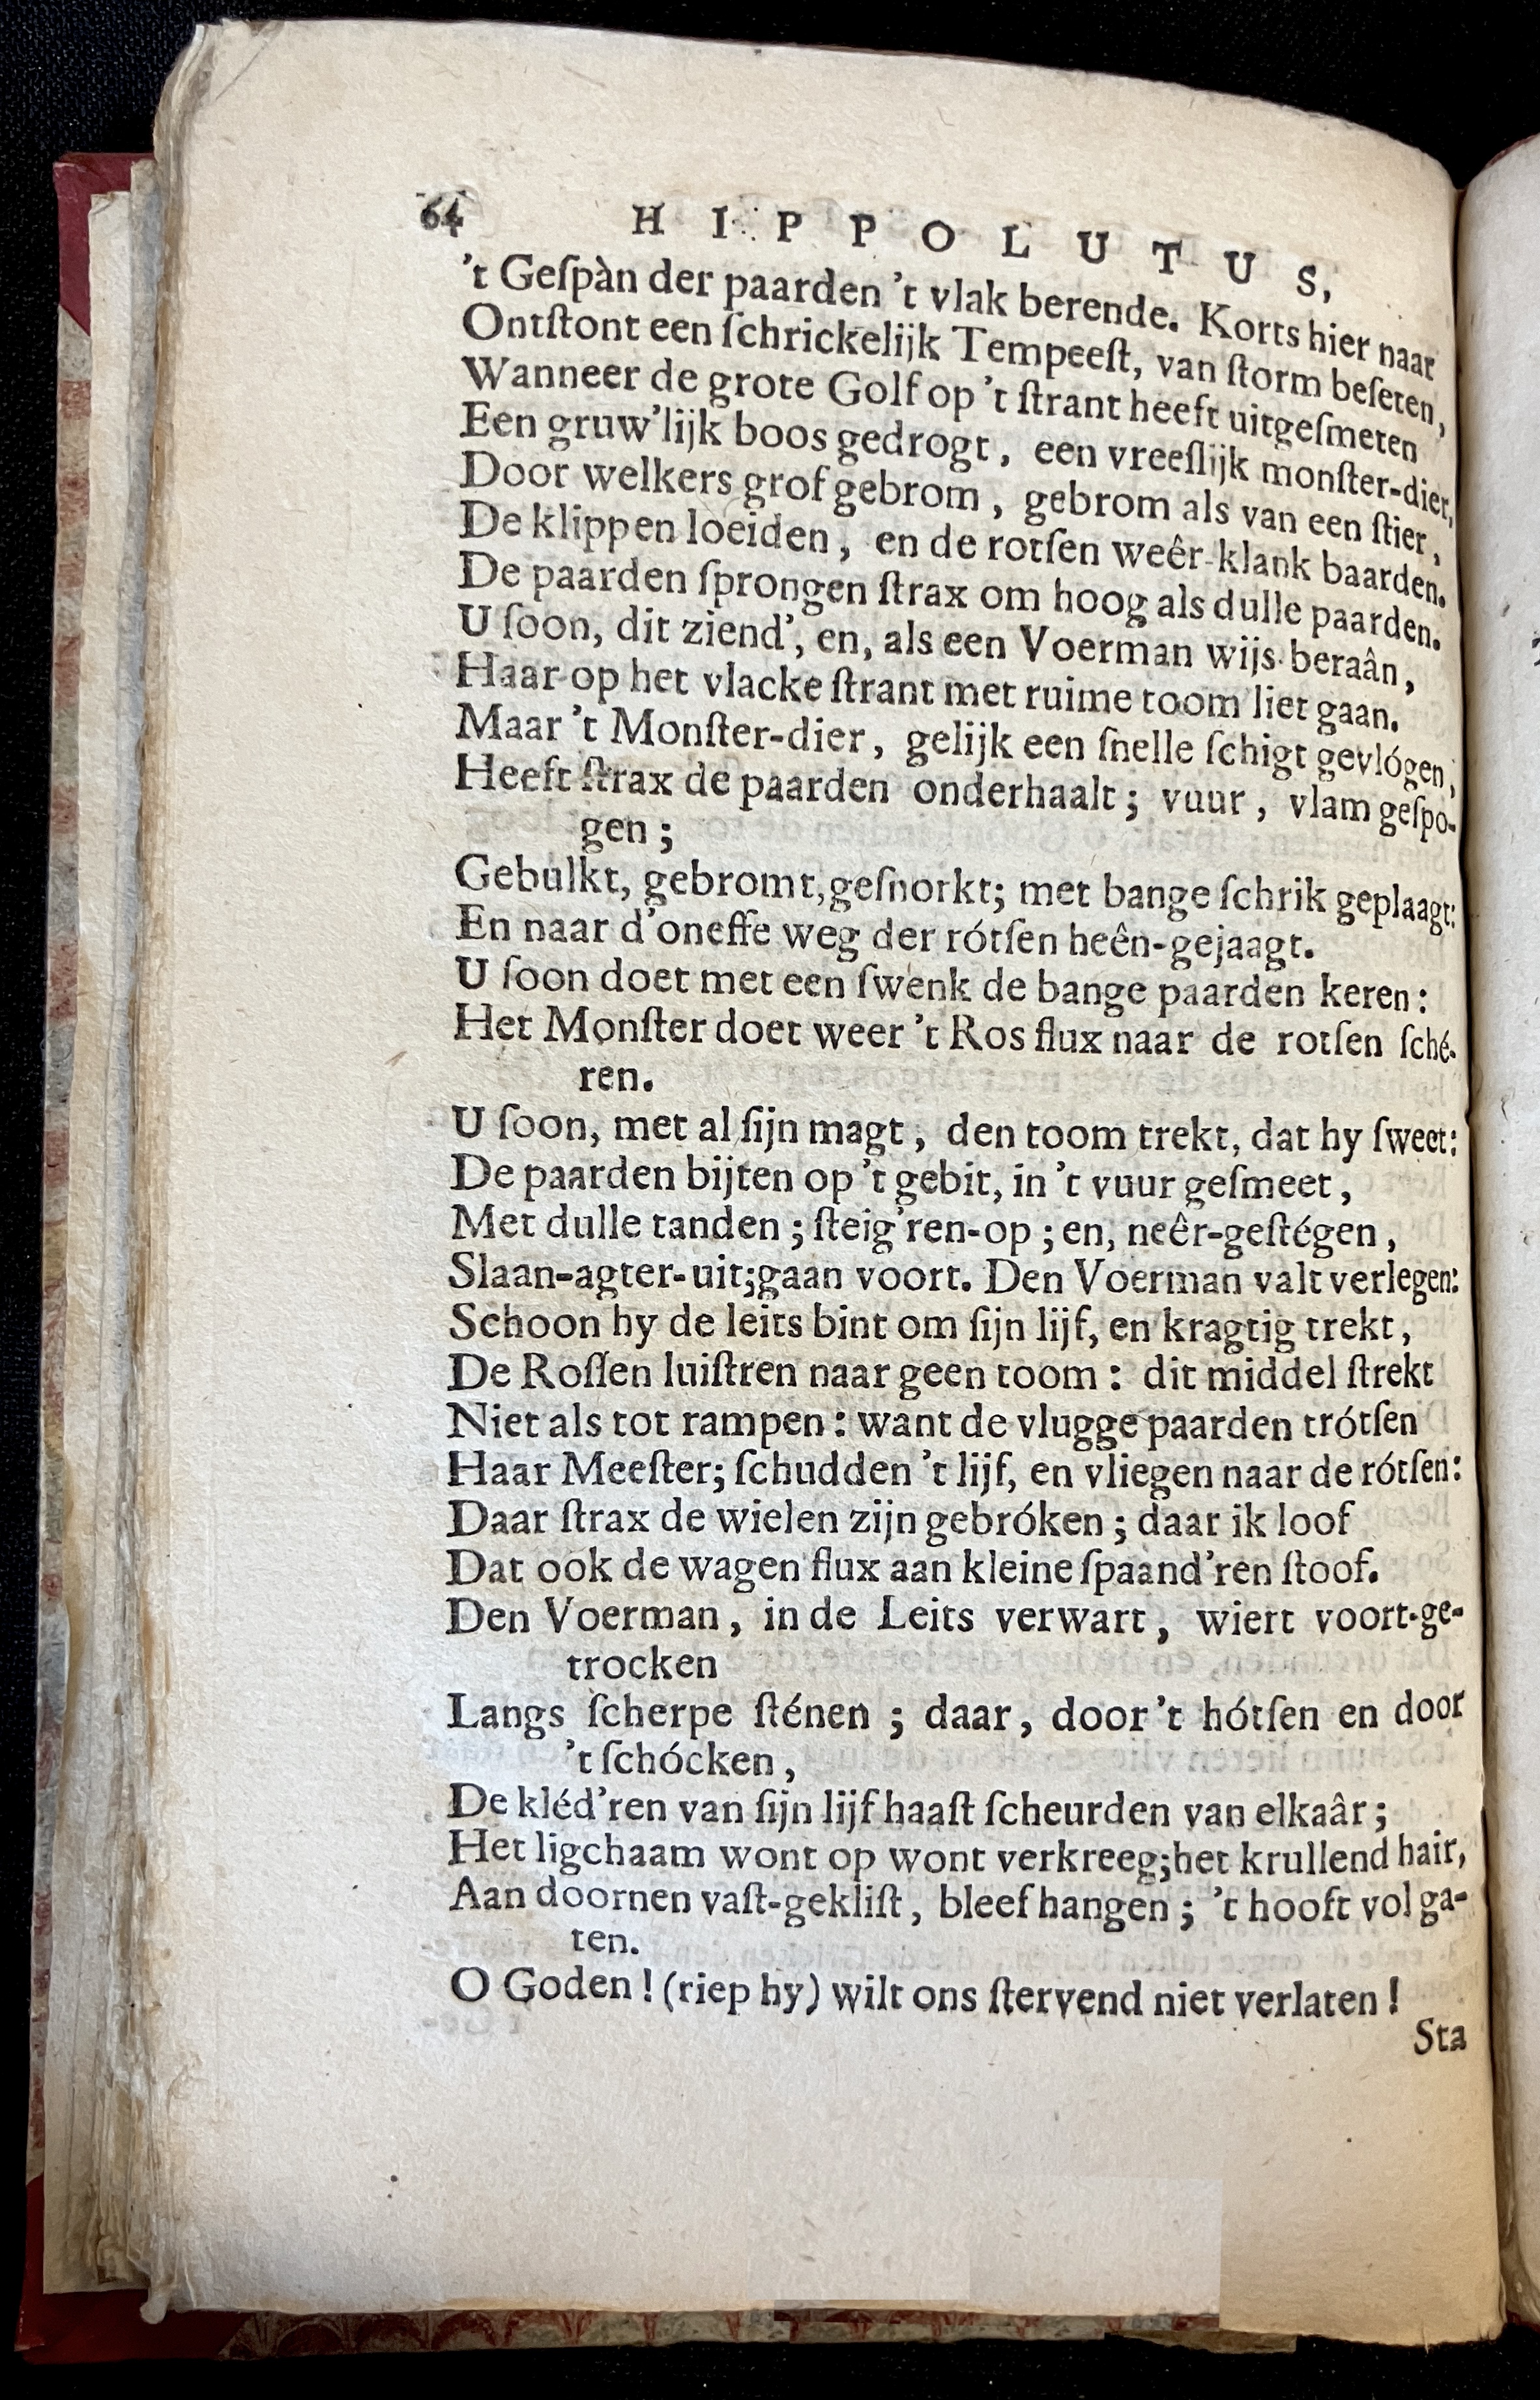 64 HIPPOLUTUS,
't Geſpàn der paarden 't vlak berende. Korts hier naar
Ontſtont een ſchrickelijk Tempeeſt, van ſtorm beſeten,
Wanneer de grote Golf op 't ſtrant heeft uitgeſmeten
Een gruw'lijk boos gedrogt, een vreeſlijk monſter-dier,
Door welkers grof gebrom, gebrom als van een ſtier,
De klippen loeiden, en de rotſen weêr-klank baarden.
De paarden ſprongen ſtrax om hoog als dulle paarden.
U ſoon, dit ziend', en, als een Voerman wijs beraân,
Haar op het vlacke ſtrant met ruime toom liet gaan.
Maar 't Monſter-dier, gelijk een ſnelle ſchigt gevlógen,
Heeft ſtrax de paarden onderhaalt; vuur, vlam geſpo-
gen;
Gebulkt, gebromt, geſnorkt; met bange ſchrik geplaagt:
En naar d'oneffe weg der rótſen heên-gejaagt.
U ſoon doet met een ſwenk de bange paarden keren:
Het Monſter doet weer 't Ros flux naar de rotſen ſché-
ren.
U ſoon, met al ſijn magt, den toom trekt, dat hy ſweet:
De paarden bijten op 't gebit, in 't vuur geſmeet,
Met dulle tanden; ſteig'ren-op; en, neêr-geſtégen,
Slaan-agter-uit; gaan voort. Den Voerman valt verlegen:
Schoon hy de leits bint om ſijn lijf, en kragtig trekt,
De Roſſen luiſtren naar geen toom: dit middel ſtrekt
Niet als tot rampen: want de vlugge paarden trótſen
Haar Meeſter; ſchudden 't lijf, en vliegen naar de rótſen:
Daar ſtrax de wielen zijn gebróken; daar ik loof
Dat ook de wagen flux aan kleine ſpaand'ren ſtoof.
Den Voerman, in de Leits verwart, wiert voort-ge-
trocken
Langs ſcherpe ſténen; daar, door 't hótſen en door
't ſchócken,
De kléd'ren van ſijn lijf haaſt ſcheurden van elkaâr;
Het ligchaam wont op wont verkreeg; het krullend hair,
Aan doornen vaſt-gekliſt, bleef hangen; 't hooft vol ga-
ten.
O Goden! (riep hy) wilt ons ſtervend niet verlaten!
Sta